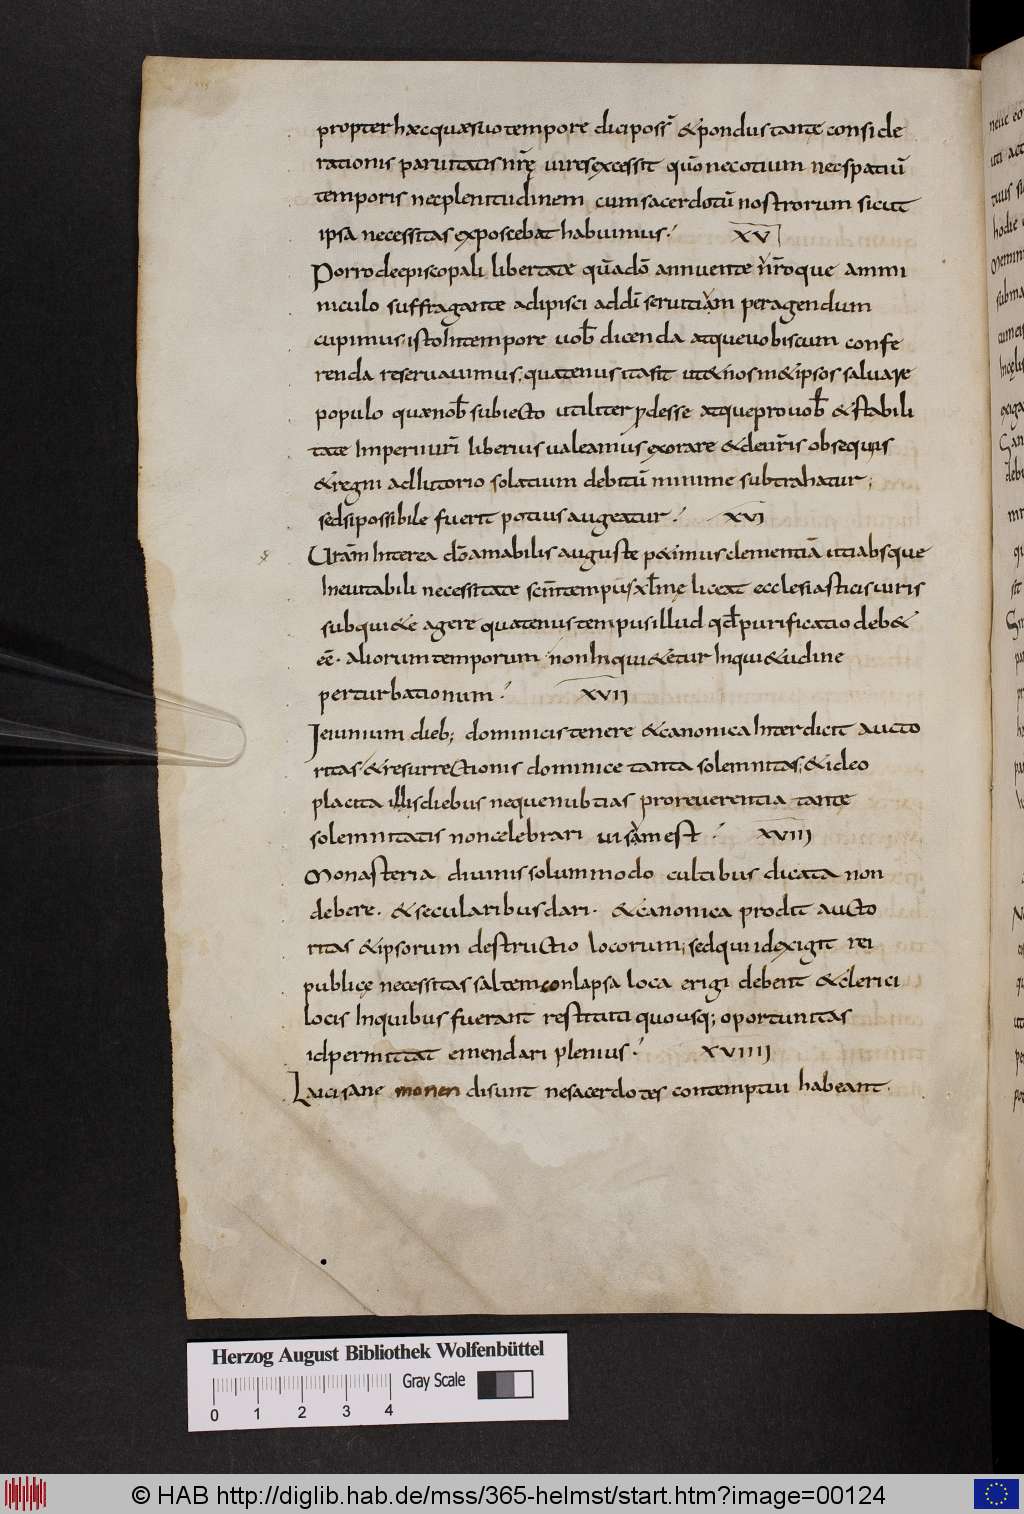 propter hæc quæ suo tempore dici poss̄ & pondus tantę conside
rationis paruitatis nr̄ę uires excessit quō nec otium nec spatiū
temporis nec plenitudinem cum sacerdotū nostrorum sicut
ipsa necessitas exposcebat habuimus· XV
Porro de episcopali libertate quā dō annuente ur̄oque ammi
niculo suffragante adipisci ad dī seruitiam peragendum
cupimus· isto In tempore uob̄ dicenda atque uobiscum confe
renda reseruauimus, quatenus ita sit ut & nos in & ipsos saluare
populo quæ nob̄ subiecto utiliter pdesse atque pro uob̄ & stabili
tate Imperii ur̄i liberius ualeamus exorare & de ur̄is obsequiis
& regni adIutorio solatium debitū minime subtrahatur;
sed si possibile fuerit potius augeatur· XVI
Uram̄ Interea dō amabilis auguste poximus clementiā uti absque
Ineuitabili necessitate scm̄ tempus xl̄mę liceat ecclesiasticis uiris
sub qui&e agere quatenus tempus illud qd̄ purificatio deb&
eē· aliorum temporum non Inqui&etur Inqui&udine
perturbationum· XVII
Ieiunium dieb; dominicis tenere & canonica Interdicit aucto
ritas· & resurrectionis dominice tanta solemnitas, & ideo
placita illis diebus neque nubtias pro reuerentia tantę
solemnitatis non celebrari uisam est· XVIII
Monasteria diuinis solummodo cultibus dicata non
debere· & secularibus dari· & canonica prodit aucto
ritas & ipsorum destructio locorum, sed qui id exigit rei
publicę necessitas saltem conlapsa loca erigi debent & clerici
locis In quibus fuerant restituti quousq; oportunitas
id permittat emendari plenius· XVIIII
Laici sane monendi sunt ne sacerdotes contemptui habeant·
Herzog August Bibliothek Wolfenbüttel
Gray Scale
0 1 2 3 4
© HAB http://diglib.hab.de/mss/365-helmst/start.htm?image=00124